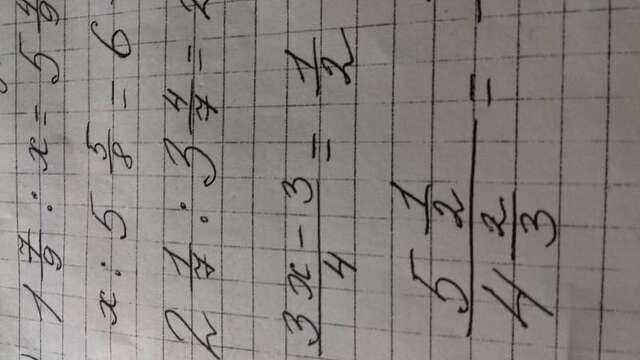 1 7/9 : x = 5 4/9
x : 5 5/8 = 6
2 1/7 : 3 4/7 =
(3x - 3)/4 = 1/2
(5 1/2)/(4 2/3) =